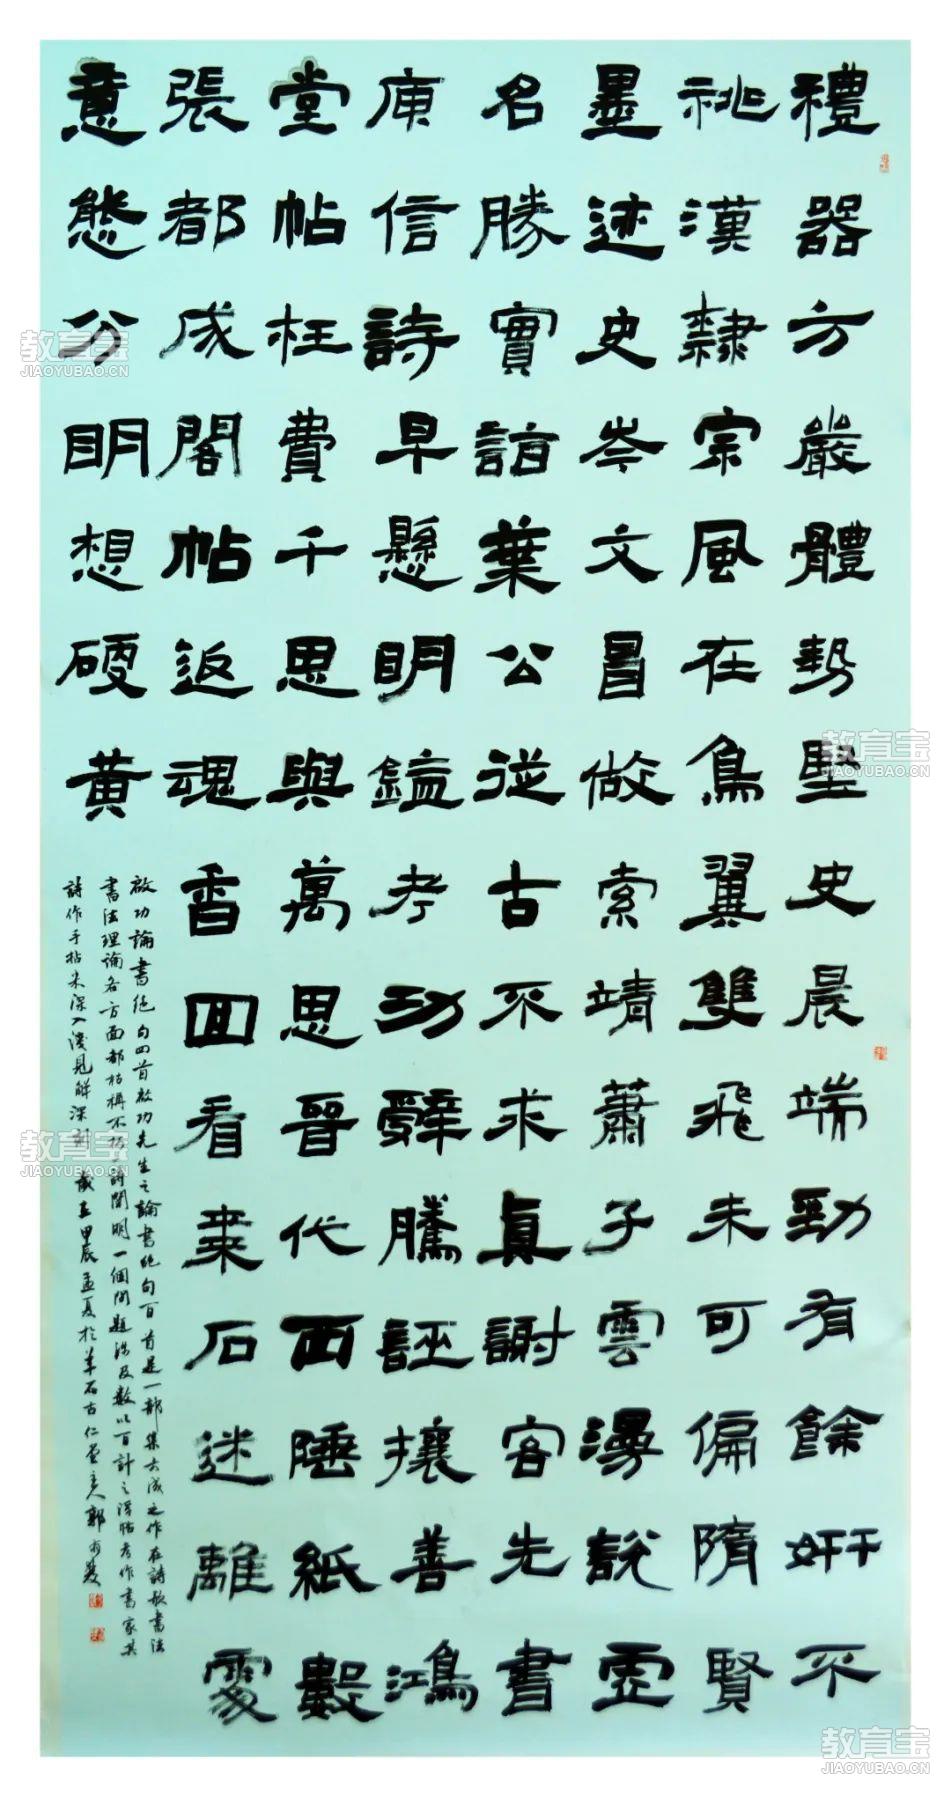 禮器方嚴體勢堅史晨端勁有餘姸不
祧漢隸宗風在鳥翼雙飛未可偏隋賢
墨迹史岑文冒做索靖蕭子雲漫說虛
名勝實詣葉公從古不求真謝客先書
庾信詩早懸明鑑考功辭騰誣攘善鴻
堂帖枉費千思與萬思晉代西陲紙數
張都成閣帖返魂香回看棗石迷離處
意態分明想硬黃
啟功論書絕句四首啟功先生之論書絕句百首是一部集大成之作在詩歌書法
書法理論各方面都 不 詩闡明一個問題涉及數以百計之碑帖 作書家其
詩作手 深入淺見解深刻 歲在甲辰孟夏於羊石古仁堂主人郭
教育宝
JIAOYUBAO.CN
教育宝
JIAOYUBAO.CN
教育宝
JIAOYUBAO.CN
教育宝
JIAOYUBAO.CN